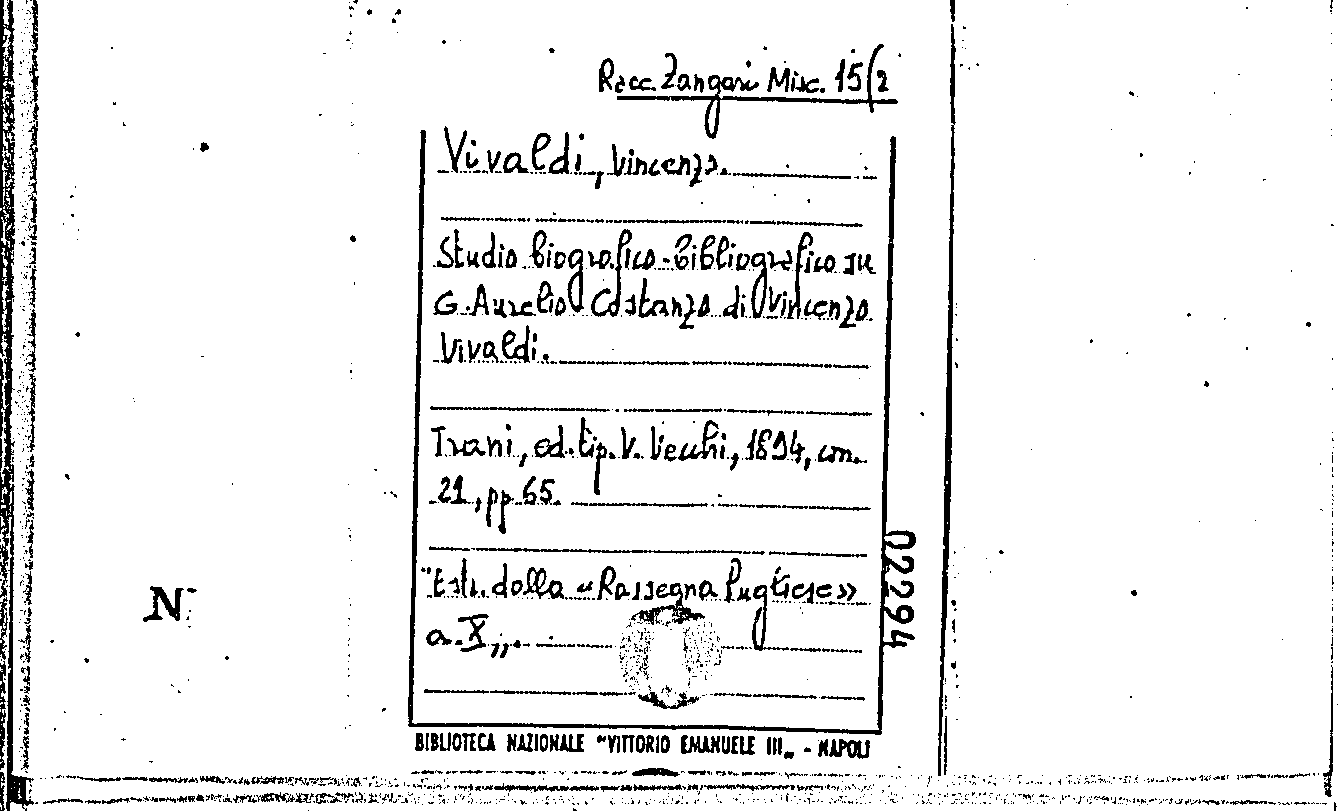 Racc. Zangari Misc. 15(2
Vivaldi, Vincenzo.
Studio biografico-bibliografico su
G. Aurelio Costanzo di Vincenzo
Vivaldi.
Trani, ed. tip. V. Vecchi, 1894, cm.
21, pp. 65.
"Estr. dalla «Rassegna Pugliese»
a. X„.
02294
N
BIBLIOTECA NAZIONALE "VITTORIO EMANUELE III„ - NAPOLI